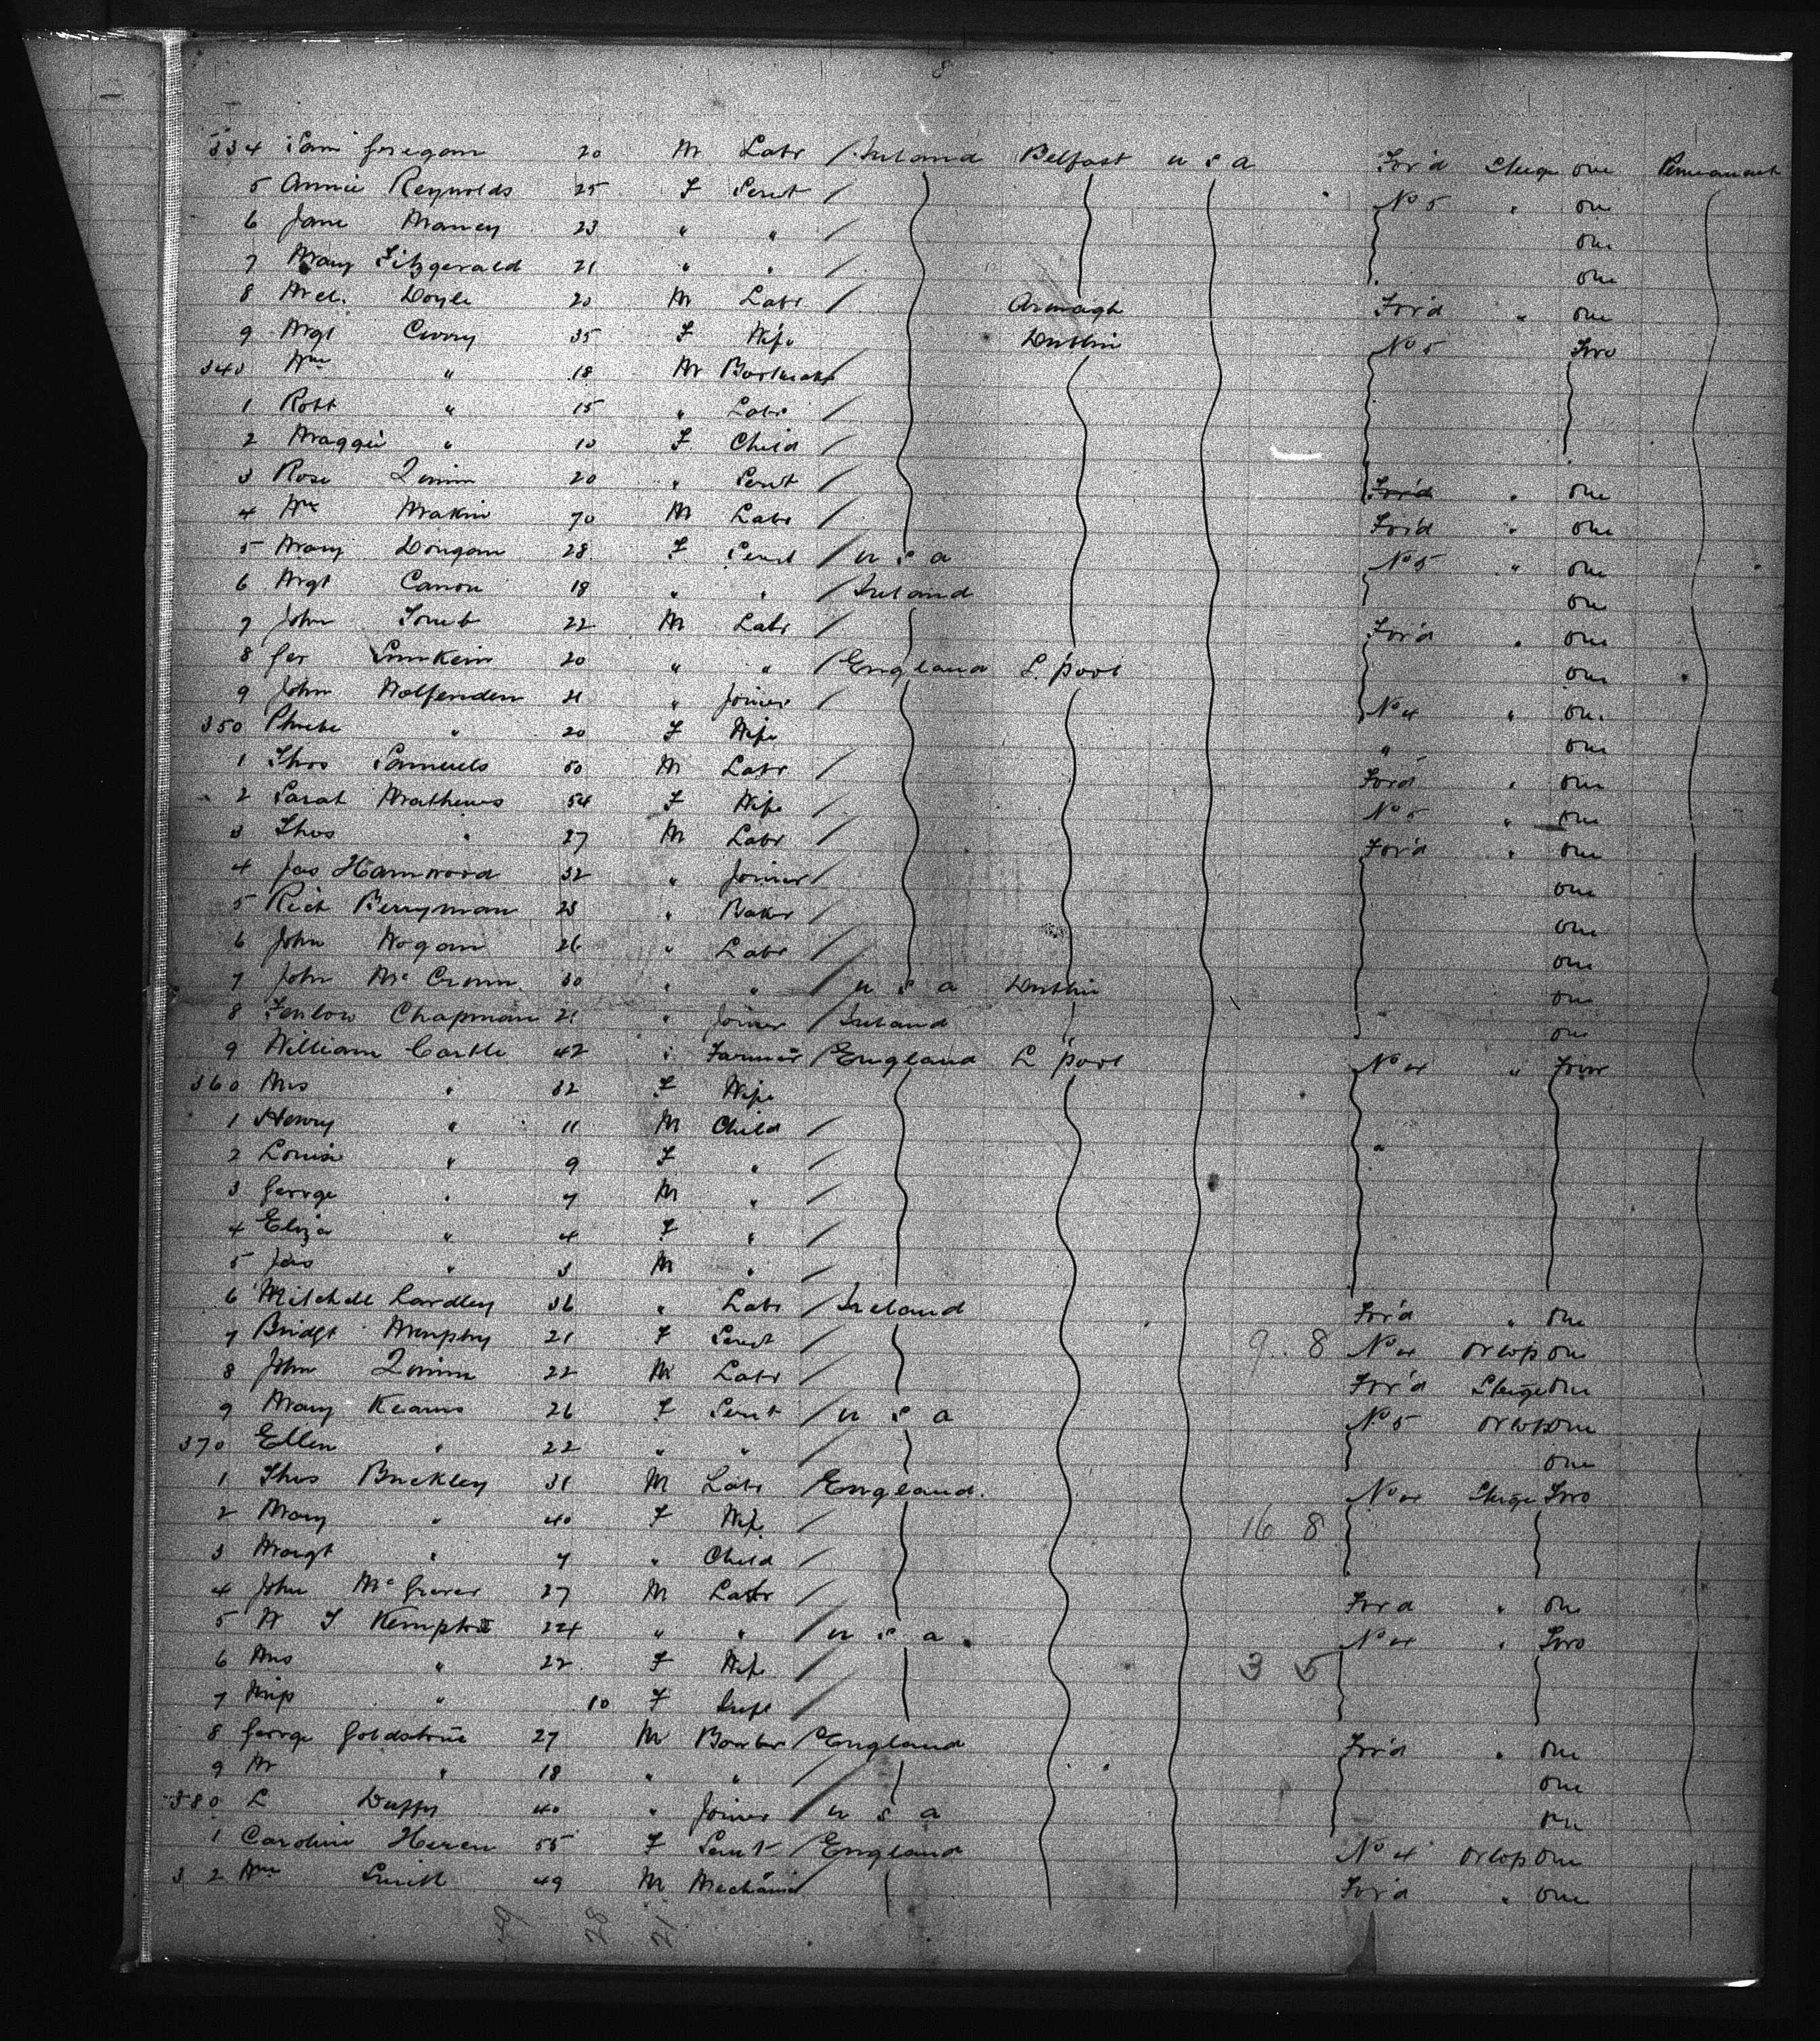 8
334 Sam Gregan 20 M Labr / Ireland Belfast U S A For'd Steige one Permanent
5 Annie Reynolds 25 F Servt / No 5 " one
6 Jane Maney 23 " " / one
7 Mary Fitzgerald 21 " " / one
8 Mcl. Doyle 20 M Labr / Armagh For'd " one
9 Mgt Curry 35 F Wife Dublin No 5 Two
340 Wm " 18 M /
1 Robt " 15 " Labr /
2 Maggie " 10 F Child /
3 Rose Quinn 20 " Servt / For'd " one
4 Wm Makin 70 M Labr / For'd " one
5 Mary Dougan 28 F Servt / U S A No 5 " one
6 Mgt Canon 18 " " / Ireland one
7 John 22 M Labr / For'd " one
8 Geo 20 " " / England L. pool one
9 John Wolfenden 21 " Joiner / No 4 " one
350 Phoebe " 20 F Wife " one
1 Thos Samuels 50 M Labr / Ford " one
2 Sarah Mathews 54 F Wife / No 5 " one
3 Thos " 27 M Labr / For'd " one
4 Jas Hamwood 32 " Joiner / one
5 Rich Berryman 23 " Bakr / one
6 John Hogan 26 " Labr / one
7 John McCrum 30 " " / U S A Dublin one
8 Fenlow Chapman 21 " Joiner / Ireland " one
9 William Castle 42 " Farmer / England L pool No 4 " Four
360 Mrs " 32 F Wife
1 Henry " 11 M Child /
2 Louisa " 9 F " / "
3 George " 7 M " /
4 Eliza " 4 F " /
5 Jas " 3 M " /
6 Mitchell Lardley 36 " Labr / Ireland For'd " one
7 Bridgt Murphy 21 F Servt / 9 8 No 4 Orlop one
8 John Quinn 22 M Labr / For'd Steige one
9 Mary Kearns 26 F Servt / U S A No 5 Orlop one
370 Ellen " 22 " " / one
1 Thos Buckley 31 M Labr / England. No 4 Steige Two
2 Mary " 40 F Wife / 16 8
3 Margt " 7 " Child /
4 John 27 M Labr / For'd " one
5 W J 24 " " / U S A No 4 " Two
6 Mrs " 22 F Wife / 3 5
7 Miss " 10 F Inft /
8 George Goldstone 27 M Barber / England For'd " one
9 M " 18 " " / one
380 L Duffy 40 " Joiner / U S A one
1 Caroline Heren 55 F Servt / England No 4 Orlop one
3 2 Wm Smith 49 M Mechanic / For'd " one
28 21